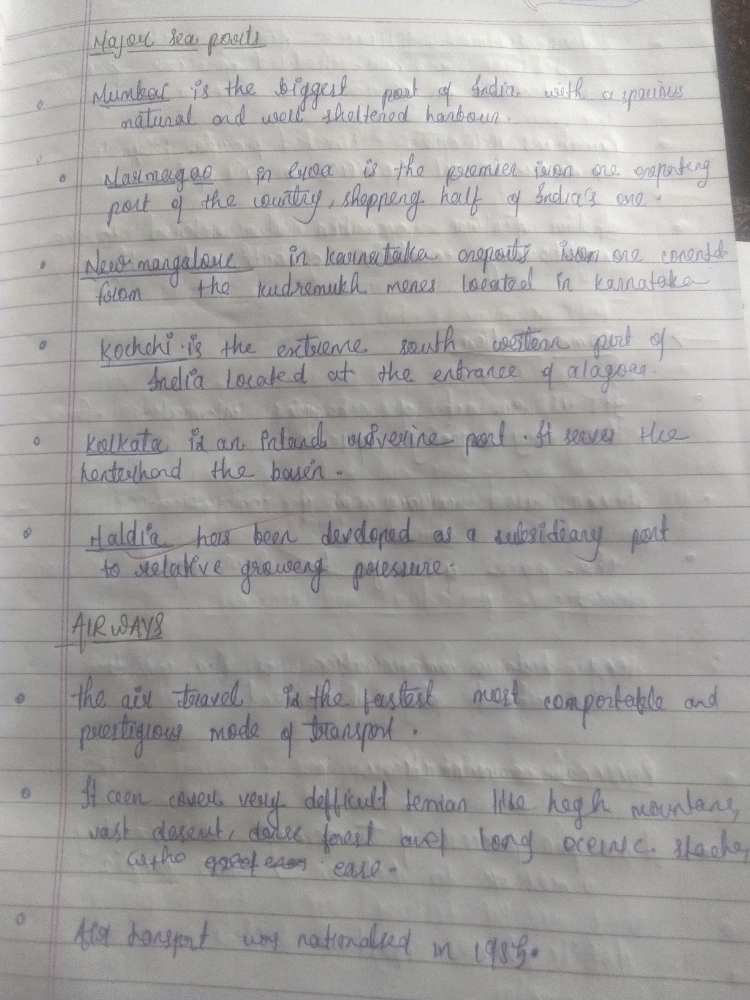 Major sea ports
Mumbai is the biggest port of India with a spacious
natural and well sheltered harbour.
Marmagao in Goa is the premier iron ore exporting
port of the country, shipping half of India's ore.
New-mangalore in karnataka exports iron ore
from the kudremukh menes located in karnataka
Kochchi is the extreme south western port of
India located at the entrance of a lagoon.
Kolkata is an Inland riverine port. It serves the
henterhond the basin.
Haldia has been developed as a subsidiary port
to relative groweng pressure.
AIRWAYS
the air travel is the fastest most comportable and
prestigious mode of transport.
It can cover very defficult terrian like hegh mountans,
vast desert, forest long
ease.
Air transport was nationalised in